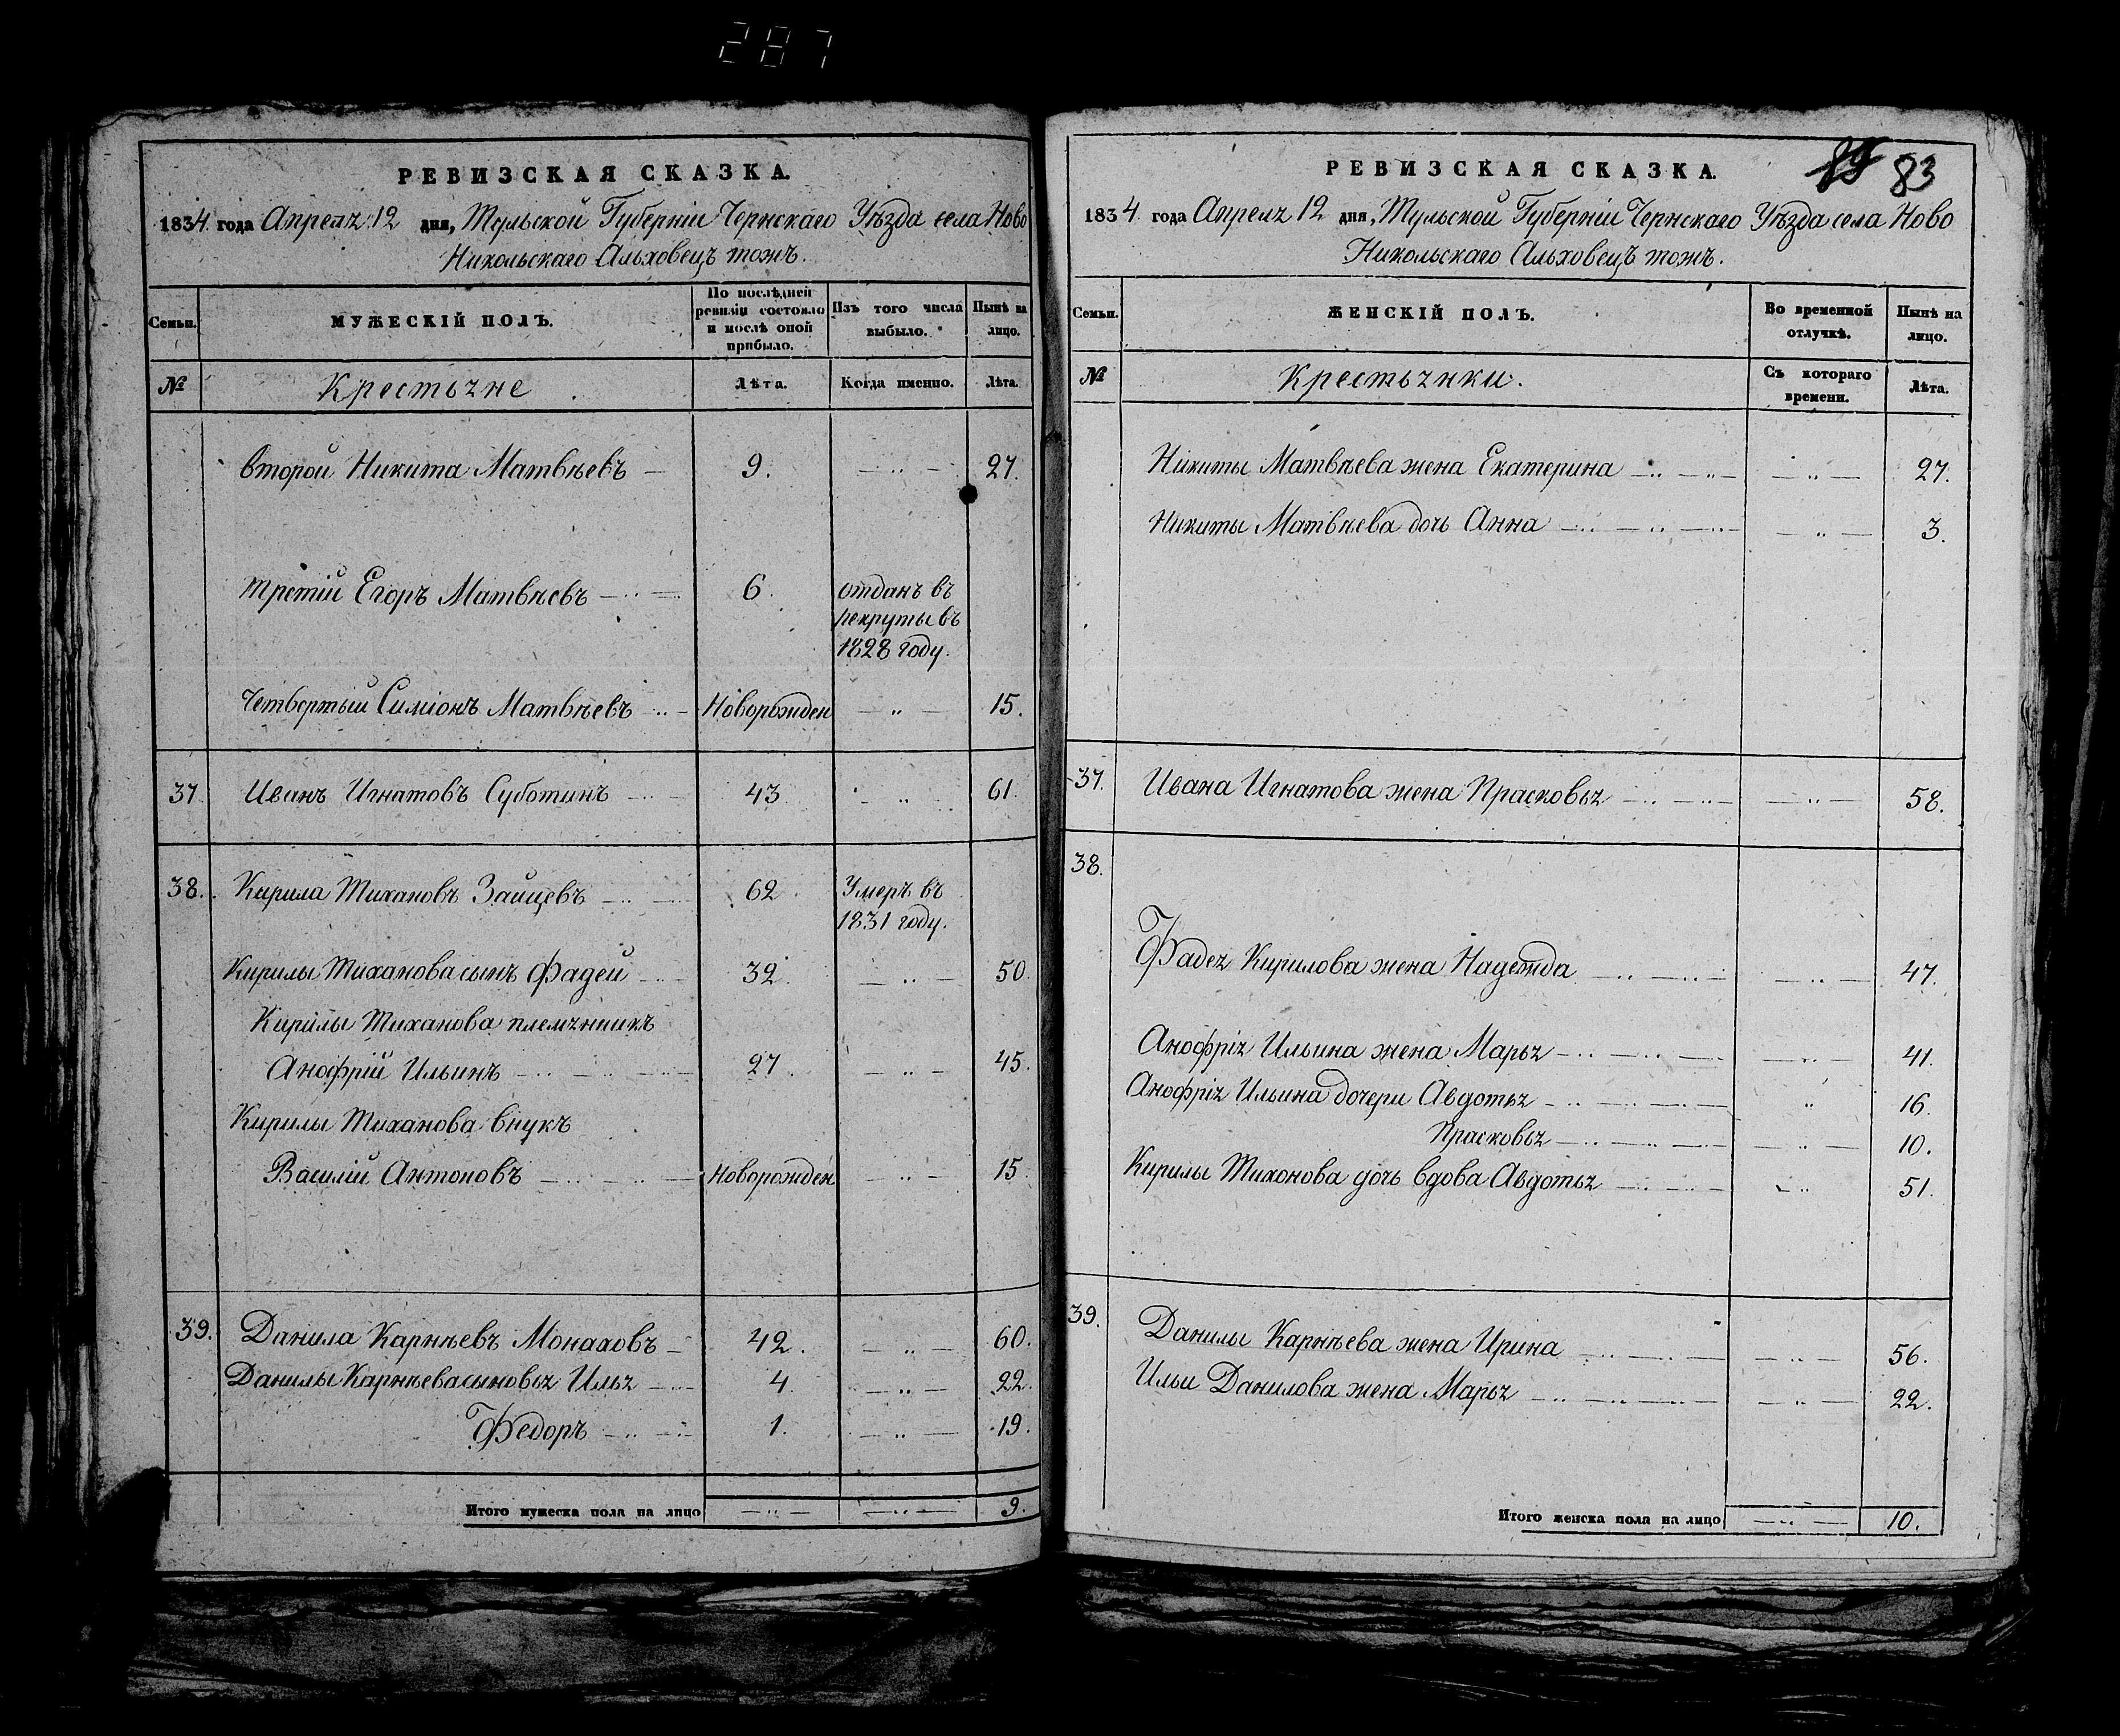 287
РЕВИЗСКАЯ СКАЗКА.
1834 года Апреля 12 дня, Тульской Губерніи Чернскаго Уѣзда села Ново
Никольскаго Альховецъ тожъ.
Семьи. МУЖЕСКІЙ ПОЛЪ. По послѣдней ревизіи состояло и послѣ оной прибыло. Изъ того числа выбыло. Нынѣ на лицо.
№ Крестьяне Лѣта. Когда именно. Лѣта.
Второй Никита Матвѣевъ 9. 27.
третій Егоръ Матвѣевъ 6. отданъ въ
рекруты въ
1828 году.
Четвертый Симіонъ Матвѣевъ Новорожден 15.
37. Иванъ Игнатовъ Суботинъ 43 61.
38. Кирила Тихановъ Зайцевъ 62. Умеръ въ
1831 году.
Кирилы Тиханова сынъ Фадей 32. 50.
Кирилы Тиханова племянникъ
Анофрій Ильинъ 27. 45.
Кирилы Тиханова внукъ
Василій Антоновъ Новорожден 15.
39. Данила Карнѣевъ Монаховъ 42. 60.
Данилы Карнѣева сыновья Илья 4. 22.
Федоръ 1. 19.
Итого мужеска пола на лицо 9.
83
РЕВИЗСКАЯ СКАЗКА.
1834 года Апреля 12 дня, Тульской Губерніи Чернскаго Уѣзда села Ново
Никольскаго Альховецъ тожъ.
Семьи. ЖЕНСКІЙ ПОЛЪ. Во временной отлучкѣ. Нынѣ на лицо.
№ Крестьянки. Съ котораго времени. Лѣта.
Никиты Матвѣева жена Екатерина 27.
Никиты Матвѣева дочь Анна 3.
37. Ивана Игнатова жена Прасковья 58.
38.
Фадея Кирилова жена Надежда 47.
Анофрія Ильина жена Марья 41.
Анофрія Ильина дочери Авдотья 16.
Прасковья 10.
Кирилы Тихонова дочь вдова Авдотья 51.
39. Данилы Карнѣева жена Ирина 56.
Ильи Данилова жена Марья 22.
Итого женска пола на лицо 10.